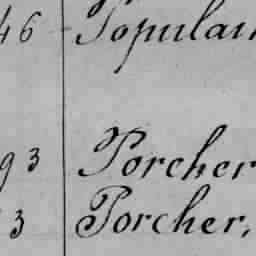 46 Populai
93 Porcher
3 Porcher,